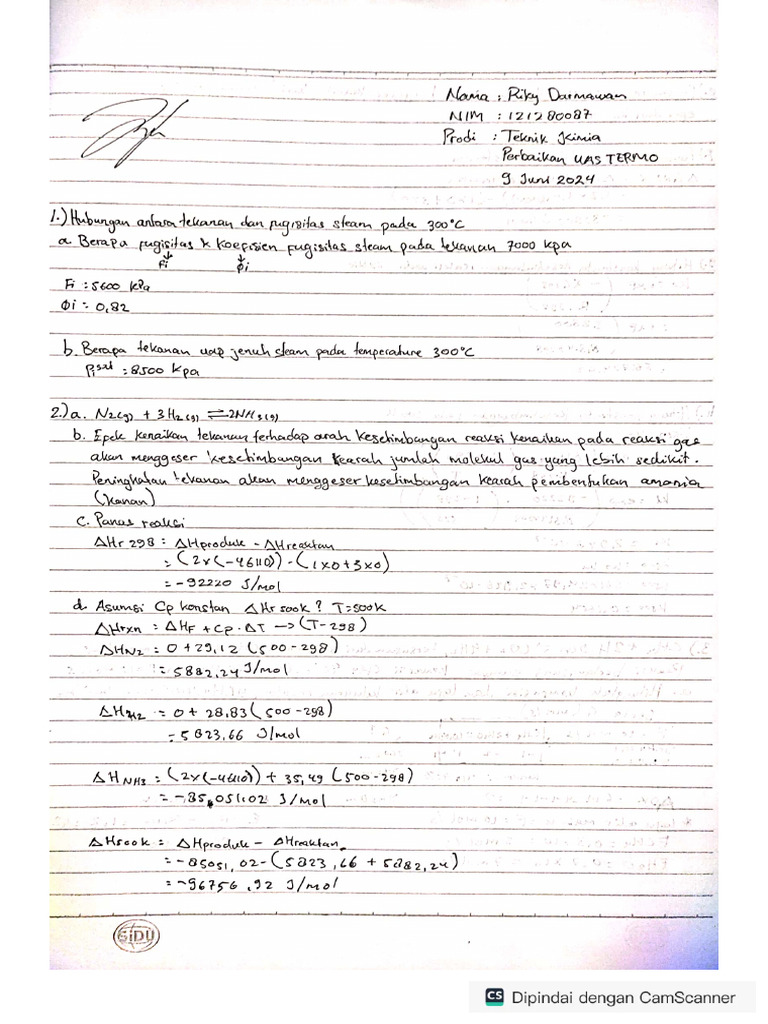 Nama : Riky Darmawan
NIM : 121280087
Prodi : Teknik Kimia
Perbaikan UAS TERMO
9 Juni 2024
1.) Hubungan antara tekanan dan fugisitas steam pada 300°C
a. Berapa fugisitas & koefisien fugisitas steam pada tekanan 7000 kpa
Fi φi
Fi : 5600 kPa
Φi = 0,82
b. Berapa tekanan uap jenuh steam pada temperature 300°C
Pi sat : 8500 kpa
2.) a. N2(g) + 3H2(g) ⇌ 2NH3(g)
b. Efek kenaikan tekanan terhadap arah kesetimbangan reaksi kenaikan pada reaksi gas
akan menggeser kesetimbangan kearah jumlah molekul gas yang lebih sedikit.
Peningkatan tekanan akan menggeser kesetimbangan kearah pembentukan amonia
(kanan)
c. Panas reaksi
ΔHr 298 : ΔHproduk - ΔHreaktan
= (2x(-46110)) - (1x0+3x0)
= -92220 J/mol
d. Asumsi Cp konstan ΔHr 500k ? T=500k
ΔHrxn = ΔHF + Cp . ΔT → (T-298)
ΔHN2 = 0 + 29,12 (500-298)
= 5882,24 J/mol
ΔHH2 = 0 + 28,83 (500-298)
= 5823,66 J/mol
ΔHNH3 = (2x(-46110)) + 35,49 (500-298)
= -85,051,02 J/mol
ΔH500k = ΔHproduk - ΔHreaktan
= -85051,02 - (5823,66 + 5882,24)
= -96756,92 J/mol
SiDU
CS Dipindai dengan CamScanner